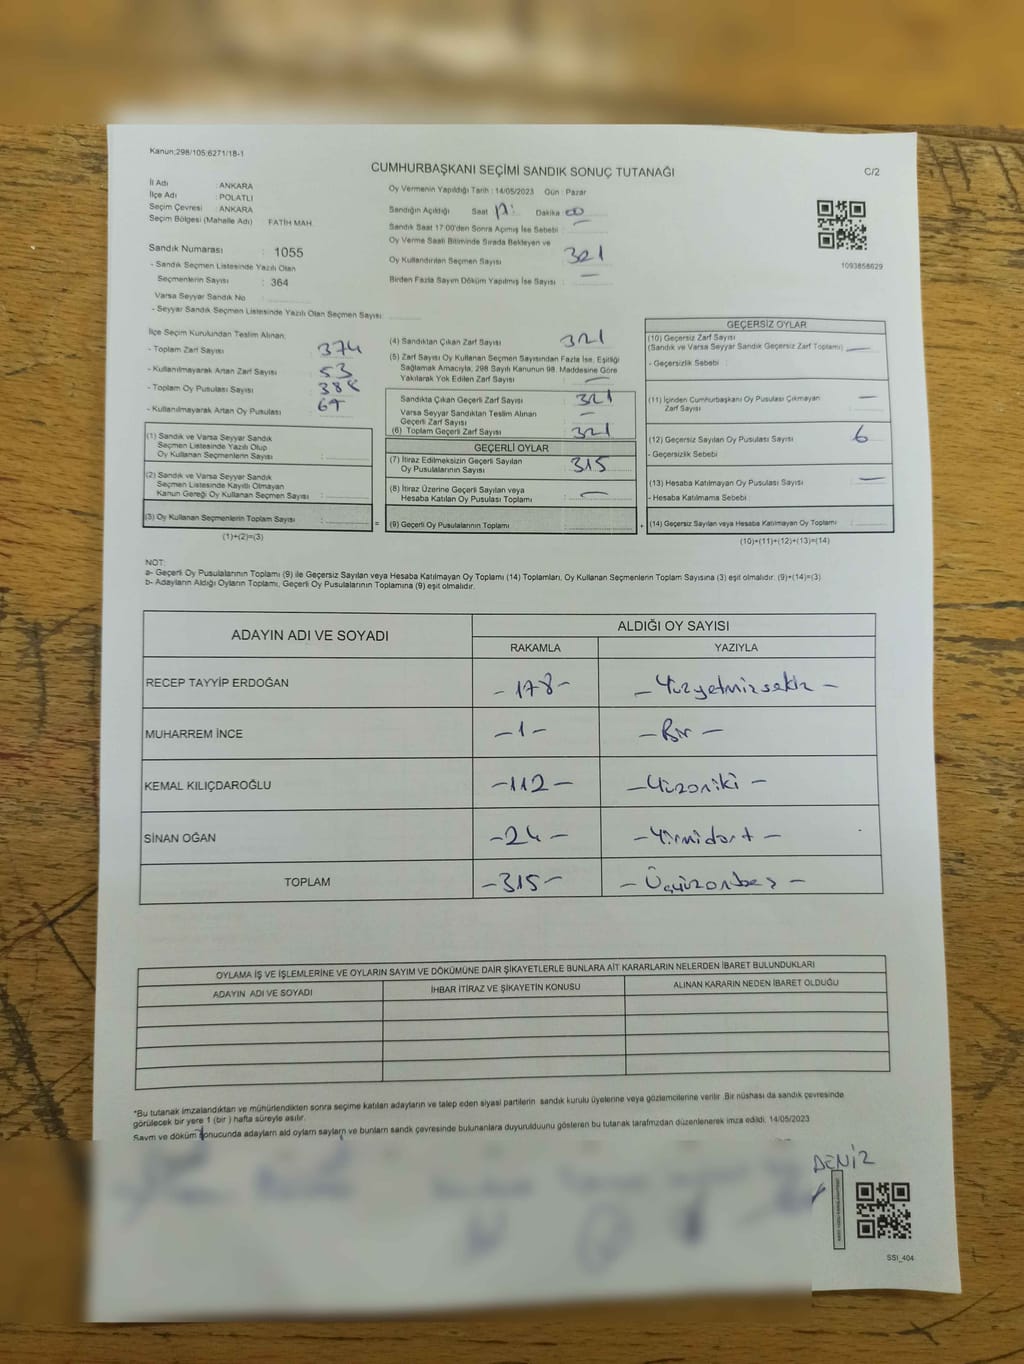 Kanun:298/105;6271/18-1
CUMHURBAŞKANI SEÇİMİ SANDIK SONUÇ TUTANAĞI
C/2
İl Adı : ANKARA
İlçe Adı : POLATLI
Seçim Çevresi : ANKARA
Seçim Bölgesi (Mahalle Adı) FATİH MAH.
Sandık Numarası : 1055
- Sandık Seçmen Listesinde Yazılı Olan
Seçmenlerin Sayısı : 364
Varsa Seyyar Sandık No :
- Seyyar Sandık Seçmen Listesinde Yazılı Olan Seçmen Sayısı :
Oy Vermenin Yapıldığı Tarih : 14/05/2023 Gün : Pazar
Sandığın Açıldığı Saat 17: Dakika 00
Sandık Saat 17:00'den Sonra Açılmış İse Sebebi :
Oy Verme Saati Bitiminde Sırada Bekleyen ve
Oy Kullandırılan Seçmen Sayısı : 321
Birden Fazla Sayım Döküm Yapılmış İse Sayısı : —
1093858629
İlçe Seçim Kurulundan Teslim Alınan;
- Toplam Zarf Sayısı : 374
- Kullanılmayarak Artan Zarf Sayısı : 53
- Toplam Oy Pusulası Sayısı
- Kullanılmayarak Artan Oy Pusulası
(1) Sandık ve Varsa Seyyar Sandık
Seçmen Listesinde Yazılı Olup
Oy Kullanan Seçmenlerin Sayısı :
(2) Sandık ve Varsa Seyyar Sandık
Seçmen Listesinde Kayıtlı Olmayan
Kanun Gereği Oy Kullanan Seçmen Sayısı :
(3) Oy Kullanan Seçmenlerin Toplam Sayısı :
(1)+(2)=(3)
(4) Sandıktan Çıkan Zarf Sayısı : 321
(5) Zarf Sayısı Oy Kullanan Seçmen Sayısından Fazla İse, Eşitliği
Sağlamak Amacıyla, 298 Sayılı Kanunun 98. Maddesine Göre
Yakılarak Yok Edilen Zarf Sayısı : —
Sandıkta Çıkan Geçerli Zarf Sayısı : 321
Varsa Seyyar Sandıktan Teslim Alınan
Geçerli Zarf Sayısı : —
(6) Toplam Geçerli Zarf Sayısı : 321
GEÇERLİ OYLAR
(7) İtiraz Edilmeksizin Geçerli Sayılan
Oy Pusulalarının Sayısı : 315
(8) İtiraz Üzerine Geçerli Sayılan veya
Hesaba Katılan Oy Pusulası Toplamı : —
(9) Geçerli Oy Pusulalarının Toplamı :
GEÇERSİZ OYLAR
(10) Geçersiz Zarf Sayısı
(Sandık ve Varsa Seyyar Sandık Geçersiz Zarf Toplamı) —
- Geçersizlik Sebebi :
(11) İçinden Cumhurbaşkanı Oy Pusulası Çıkmayan
Zarf Sayısı : —
(12) Geçersiz Sayılan Oy Pusulası Sayısı : 6
- Geçersizlik Sebebi
(13) Hesaba Katılmayan Oy Pusulası Sayısı : —
- Hesaba Katılmama Sebebi :
(14) Geçersiz Sayılan veya Hesaba Katılmayan Oy Toplamı :
(10)+(11)+(12)+(13)=(14)
NOT:
a- Geçerli Oy Pusulalarının Toplamı (9) ile Geçersiz Sayılan veya Hesaba Katılmayan Oy Toplamı (14) Toplamları, Oy Kullanan Seçmenlerin Toplam Sayısına (3) eşit olmalıdır. (9)+(14)=(3)
b- Adayların Aldığı Oyların Toplamı, Geçerli Oy Pusulalarının Toplamına (9) eşit olmalıdır.
ADAYIN ADI VE SOYADI ALDIĞI OY SAYISI
RAKAMLA YAZIYLA
RECEP TAYYİP ERDOĞAN -178- -Yüzyetmişsekiz-
MUHARREM İNCE -1- -Bir-
KEMAL KILIÇDAROĞLU -112- -Yüzoniki-
SİNAN OĞAN -24- -Yirmidört-
TOPLAM -315- -Üçyüzonbeş-
OYLAMA İŞ VE İŞLEMLERİNE VE OYLARIN SAYIM VE DÖKÜMÜNE DAİR ŞİKAYETLERLE BUNLARA AİT KARARLARIN NELERDEN İBARET BULUNDUKLARI
ADAYIN ADI VE SOYADI İHBAR İTİRAZ VE ŞİKAYETİN KONUSU ALINAN KARARIN NEDEN İBARET OLDUĞU
*Bu tutanak imzalandıktan ve mühürlendikten sonra seçime katılan adayların ve talep eden siyasi partilerin sandık kurulu üyelerine veya gözlemcilerine verilir. Bir nüshası da sandık çevresinde
görülecek bir yere 1 (bir) hafta süreyle asılır.
Sayım ve döküm sonucunda adayların aldı oyların sayıları ve bunların sandık çevresinde bulunanlara duyurulduunu gösteren bu tutanak tarafımızdan düzenlenerek imza edildi. 14/05/2023
DENİZ
SSI_404